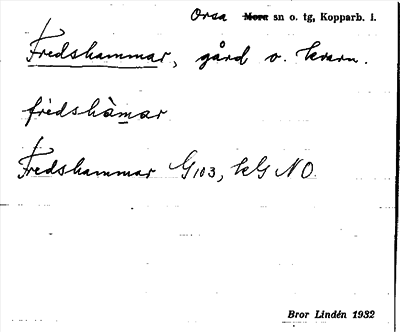 Orsa Mora sn o. tg, Kopparb. l.
Fredshammar, gård o. kvarn.
frèdshàmar
Fredshammar G103, kG NO.
Bror Lindén 1932